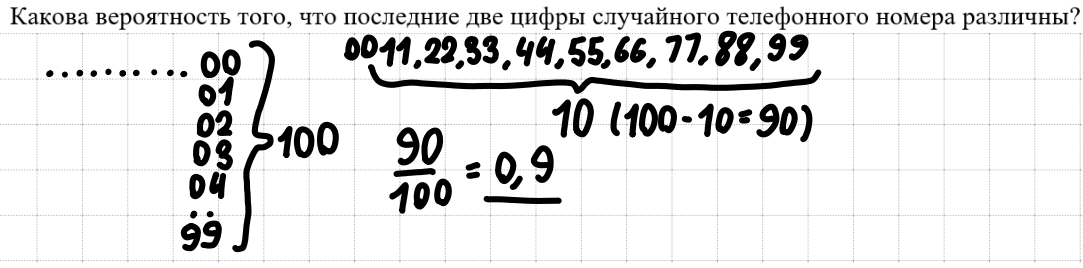 Какова вероятность того, что последние две цифры случайного телефонного номера различны?
.......... 00
01
02
03
04
..
99
} 100
00 11, 22, 33, 44, 55, 66, 77, 88, 99
10 (100-10=90)
90/100 = 0,9